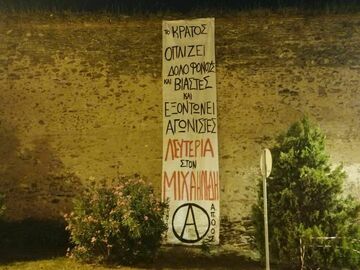 ΤΟ ΚΡΑΤΟΣ
ΟΠΛΙΖΕΙ
ΔΟΛΟΦΟΝΟΥΣ
ΚΑΙ ΒΙΑΣΤΕΣ
ΚΑΙ
ΕΞΟΝΤΩΝΕΙ
ΑΓΩΝΙΣΤΕΣ
ΛΕΥΤΕΡΙΑ
ΣΤΟΝ
ΜΙΧΑΗΛΙΔΗ
Α